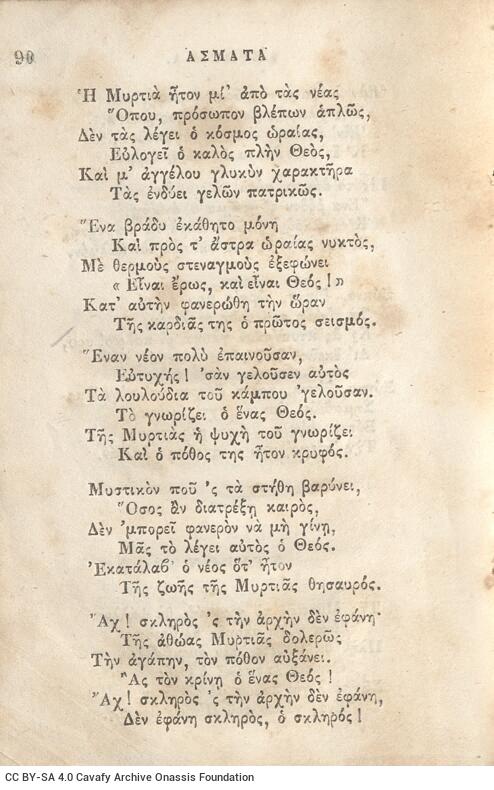 90
ΑΣΜΑΤΑ
Ἡ Μυρτιὰ ἦτον μί' ἀπὸ τὰς νέας
Ὅπου, πρόσωπον βλέπων ἁπλῶς,
Δὲν τὰς λέγει ὁ κόσμος ὡραίας,
Εὐλογεῖ ὁ καλὸς πλὴν Θεὸς,
Καὶ μ' ἀγγέλου γλυκὺν χαρακτῆρα
Τὰς ἐνδύει γελῶν πατρικῶς.
Ἕνα βράδυ ἐκάθητο μόνη
Καὶ πρὸς τ' ἄστρα ὡραίας νυκτὸς,
Μὲ θερμοὺς στεναγμοὺς ἐξεφώνει
« Εἶναι ἔρως, καὶ εἶναι Θεός ! »
Κατ' αὐτὴν φανερώθη τὴν ὥραν
Τῆς καρδιᾶς της ὁ πρῶτος σεισμός.
Ἕναν νέον πολὺ ἐπαινοῦσαν,
Εὐτυχής ! 'σὰν γελοῦσεν αὐτὸς
Τὰ λουλούδια τοῦ κάμπου 'γελοῦσαν.
Τὸ γνωρίζει ὁ ἕνας Θεός.
Τῆς Μυρτιᾶς ἡ ψυχὴ τοῦ γνωρίζει
Καὶ ὁ πόθος της ἦτον κρυφός.
Μυστικὸν ποῦ 'ς τὰ στήθη βαρύνει,
Ὅσος ἂν διατρέξῃ καιρὸς,
Δὲν 'μπορεῖ φανερὸν νὰ μὴ γίνῃ,
Μᾶς τὸ λέγει αὐτὸς ὁ Θεός.
Ἐκατάλαβ' ὁ νέος ὅτ' ἦτον
Τῆς ζωῆς τῆς Μυρτιᾶς θησαυρός.
Ἄχ ! σκληρὸς 'ς τὴν ἀρχὴν δὲν ἐφάνη·
Τῆς ἀθώας Μυρτιᾶς δολερῶς
Τὴν ἀγάπην, τὸν πόθον αὐξάνει.
Ἂς τὸν κρίνῃ ὁ ἕνας Θεός !
Ἄχ ! σκληρὸς 'ς τὴν ἀρχὴν δὲν ἐφάνη,
Δὲν ἐφάνη σκληρὸς, ὁ σκληρός !
CC BY-SA 4.0 Cavafy Archive Onassis Foundation